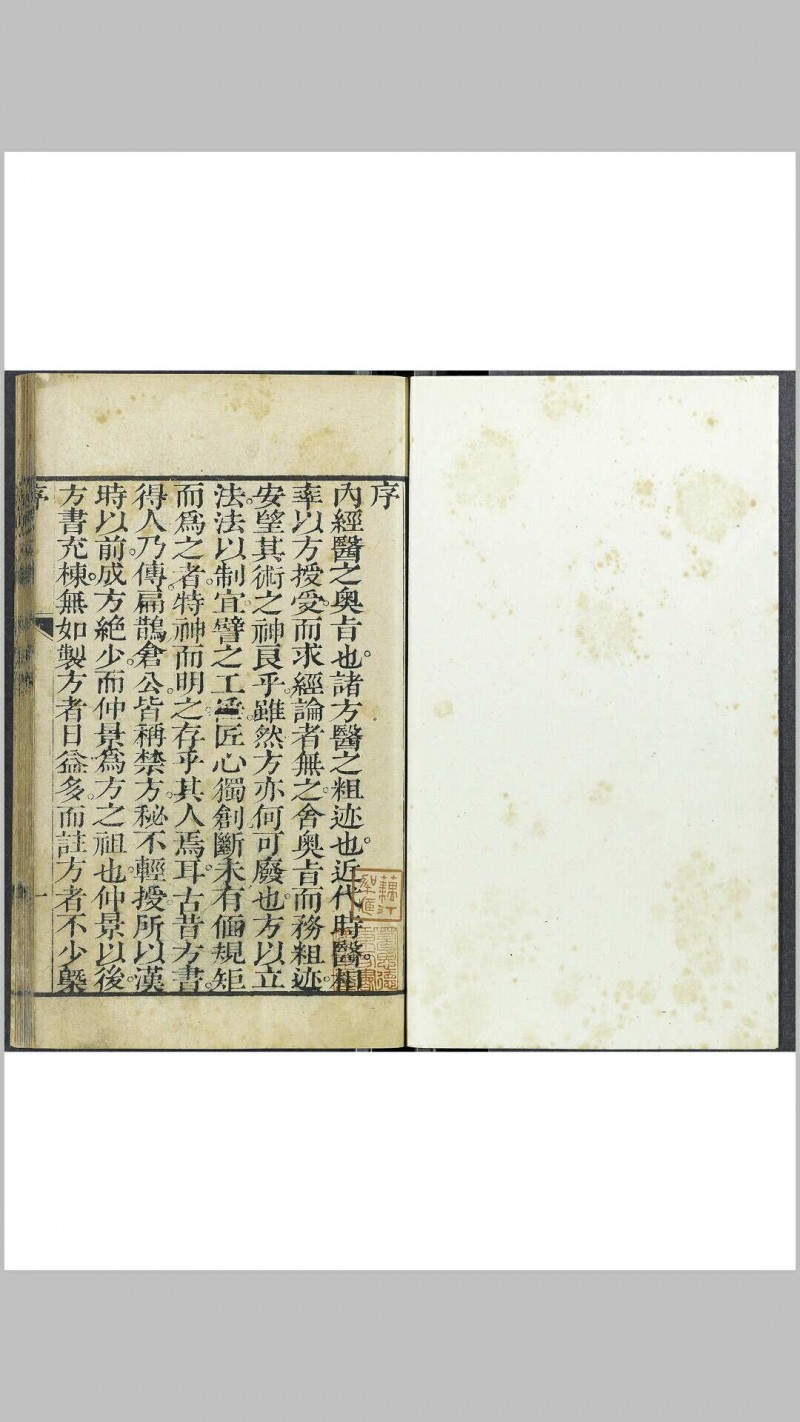 序
內經醫之奧旨也。諸方醫之粗迹也。近代時醫。相
率以方授受。而求經論者無之。舍奧旨而務粗迹。
安望其術之神良乎。雖然方亦何可廢也。方以立
法。法以制宜。譬之工倕匠心獨創。斷未有偭規矩
而爲之者。特神而明之。存乎其人焉耳。古昔方書。
得人乃傳。扁鵲倉公。皆稱禁方。秘不輕授。所以漢
時以前。成方絶少。而仲景爲方之祖也。仲景以後
方書充棟。無如製方者日益多。而註方者不少槩
序
一